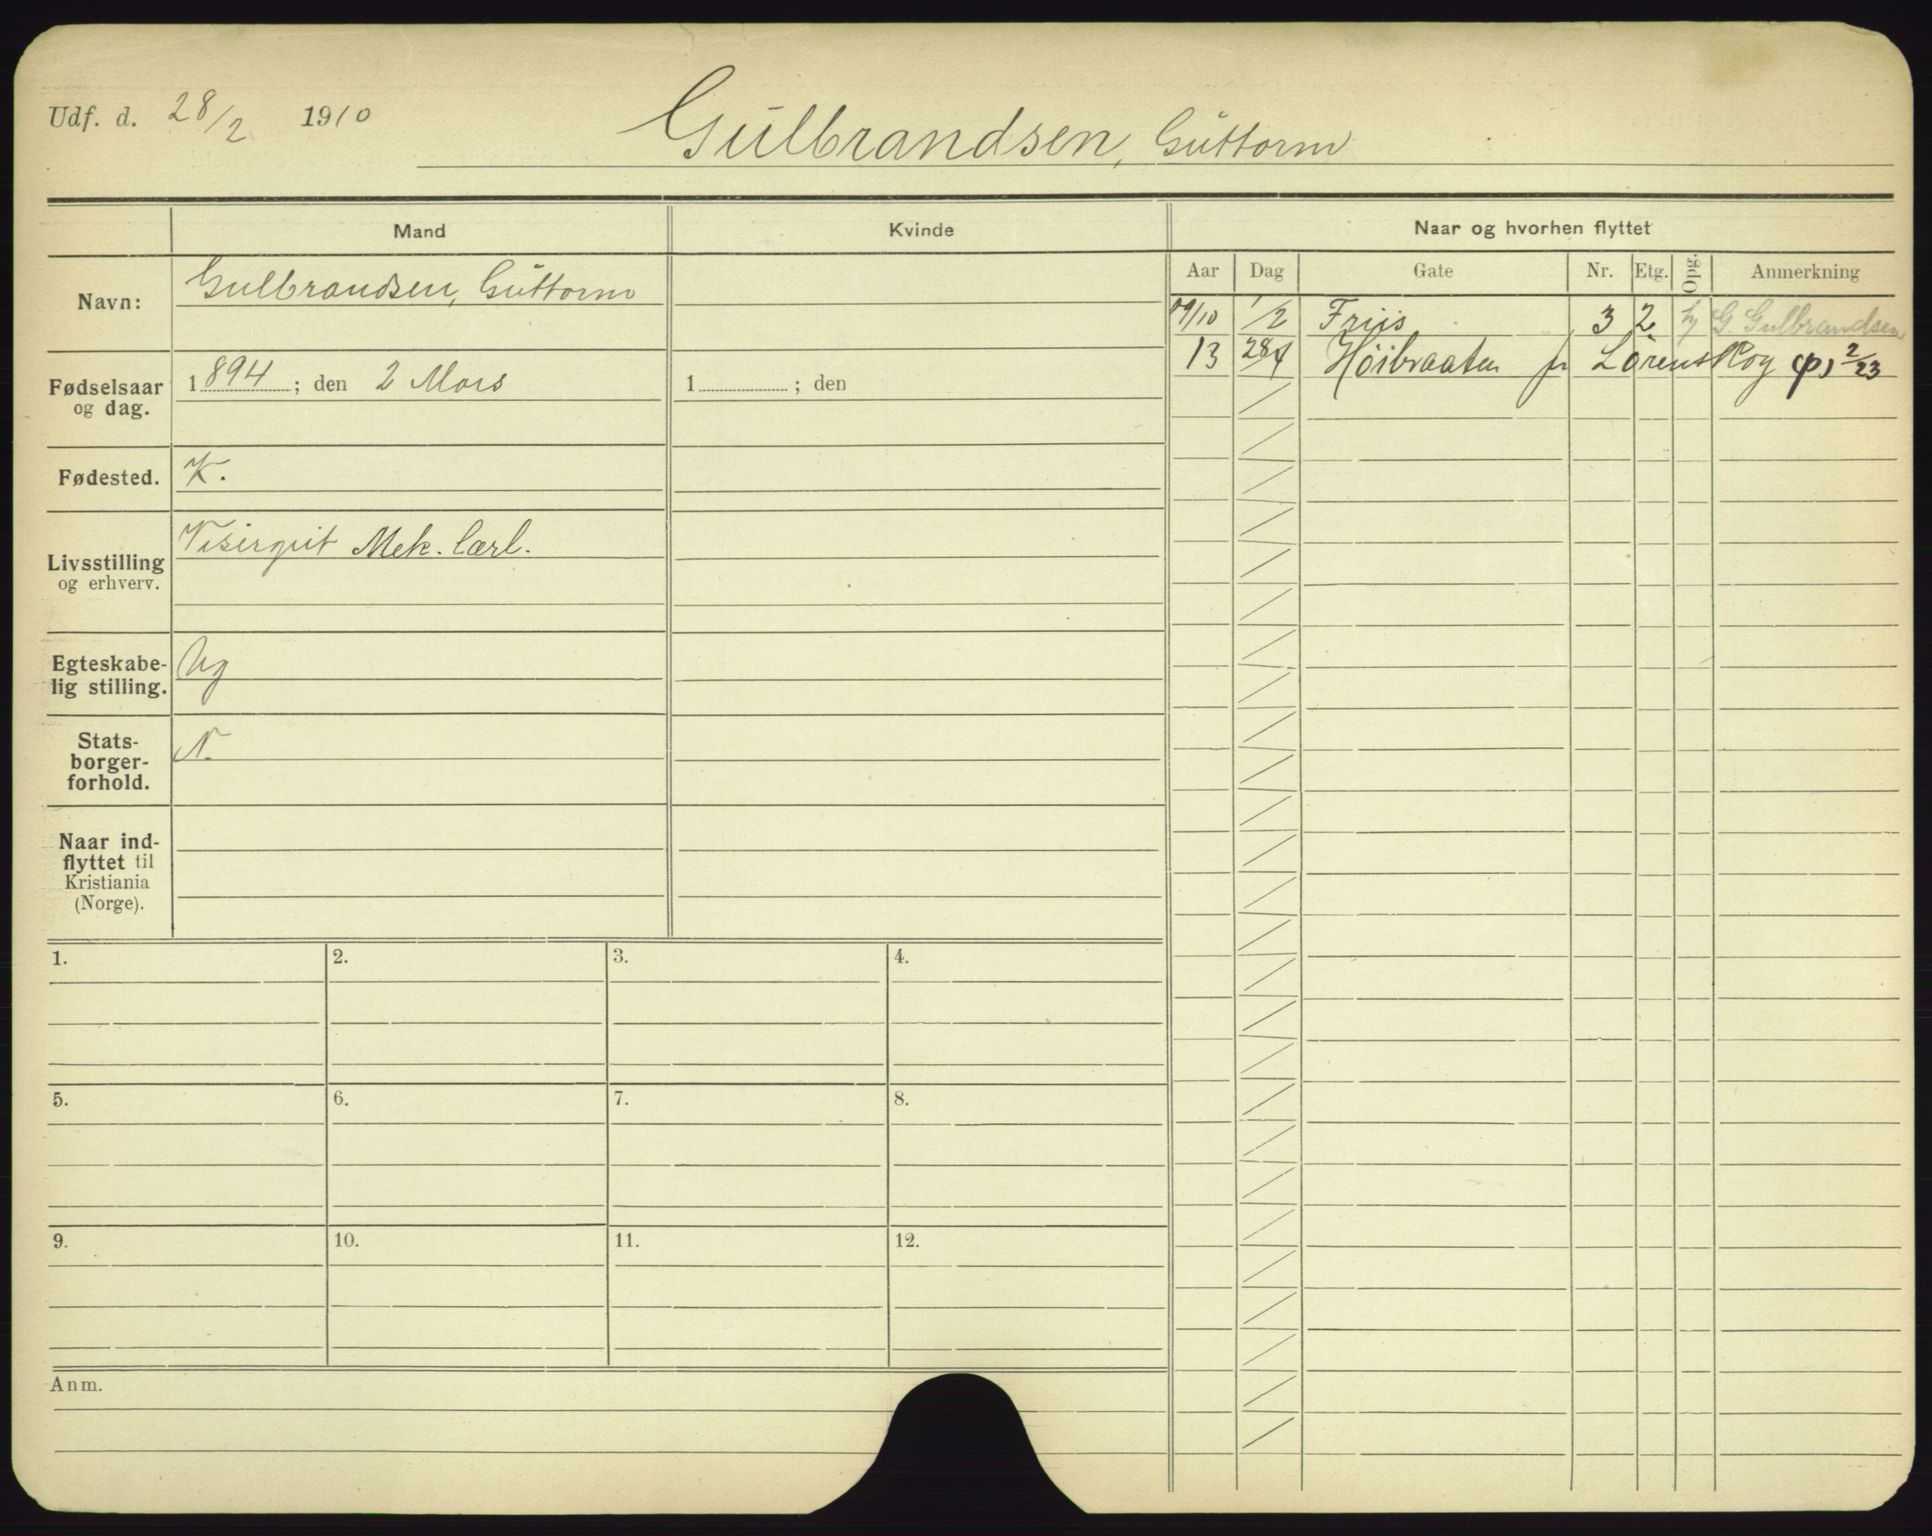 Udf. d. 28/2 1910
Gulbrandsen, Guttorm
Mand
Kvinde
Naar og hvorhen flyttet
Aar Dag Gate Nr. Etg. Opg. Anmerkning
Navn: Gulbrandsen, Guttorm
09/10 1/2 Friis 3 2 G. Gulbrandsen
13 28/4 Høibraaten pr Lørenskog φ) 2/23
Fødselsaar
og dag.
1894; den 2 Mars
1 ; den
Fødested. K.
Livsstilling
og erhverv.
Visergut Mek. Lærl.
Egteskabe-
lig stilling.
Ug
Stats-
borger-
forhold.
N.
Naar ind-
flyttet til
Kristiania
(Norge).
1. 2. 3. 4.
5. 6. 7. 8.
9. 10. 11. 12.
Anm.